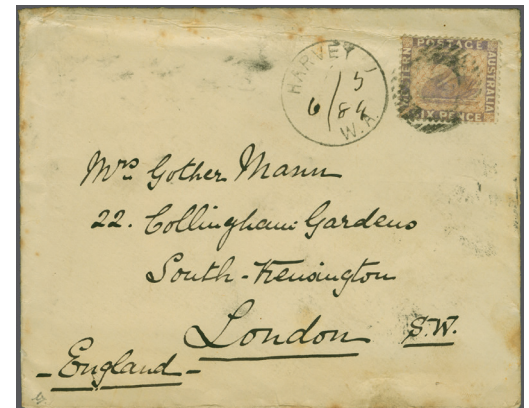 HARVEY
6/5
84
W.A.
POSTAGE
WESTERN
AUSTRALIA
SIX PENCE
Mrs Gother Mann
22. Collingham Gardens
South-Kensington
London S.W.
- England -